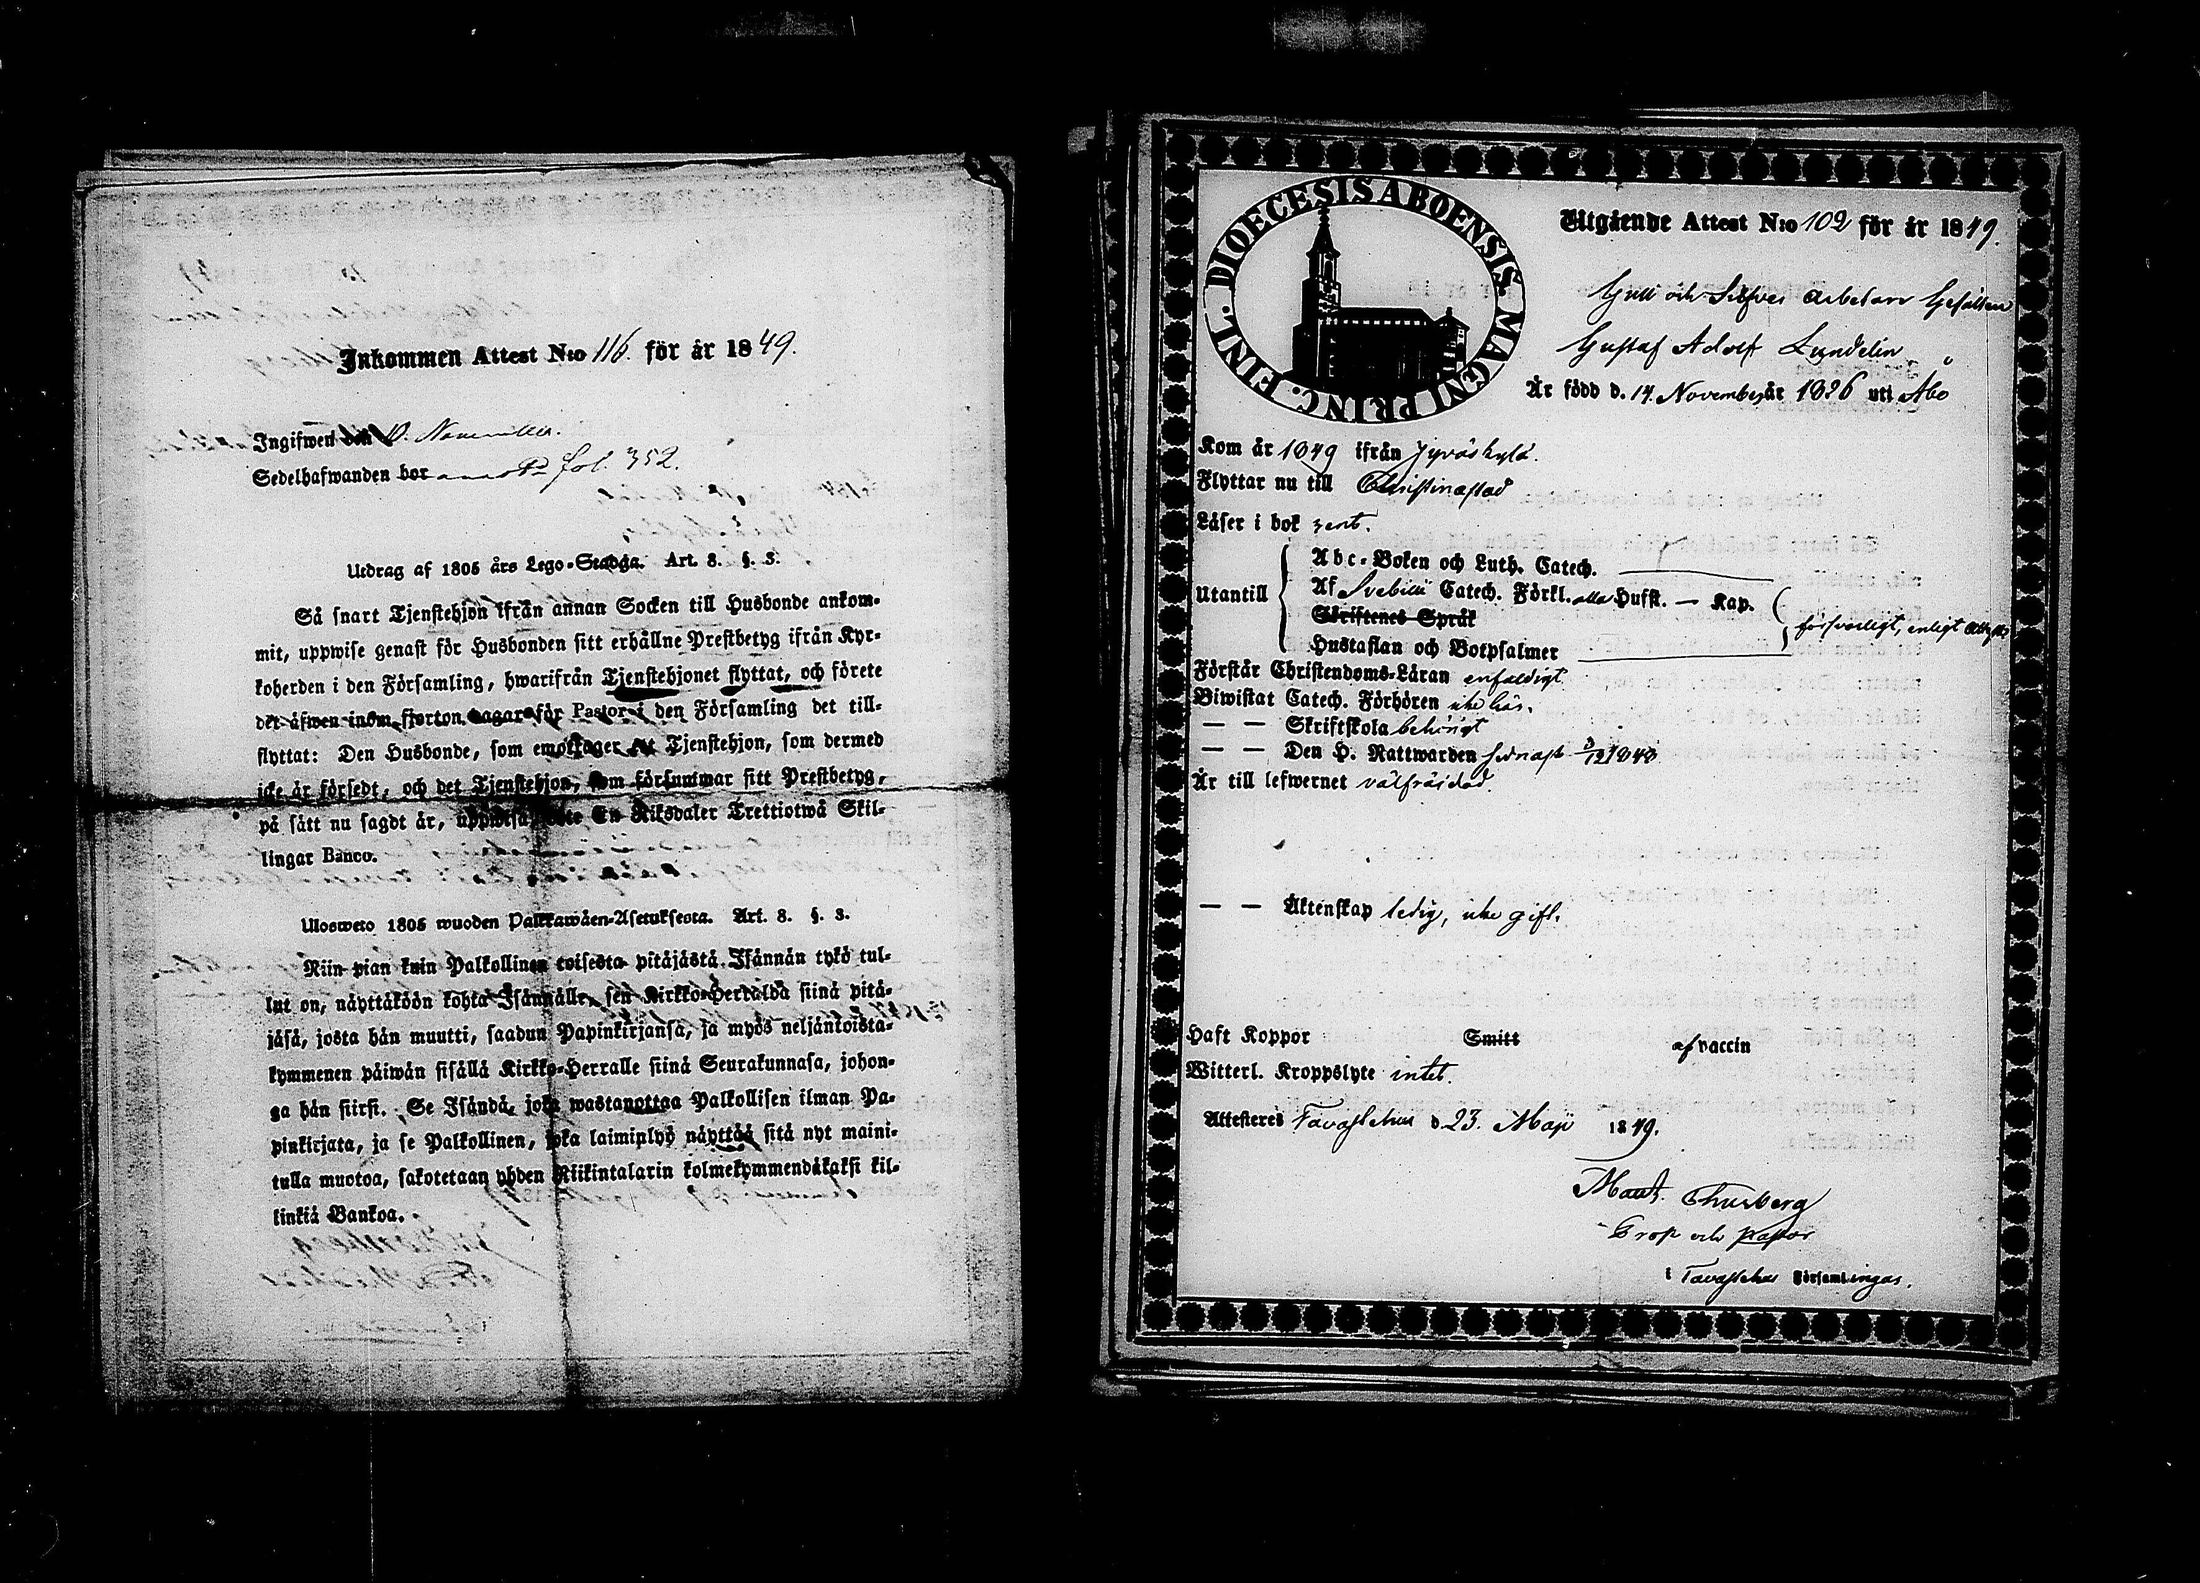 Inkommen Attest N:o 116. för år 1849.
Ingifwen den 8. November.
Sedelhafwanden bor fol. 352.
Utdrag af 1805 års Lego-Stadga. Art. 8. §. 3.
Så snart Tjenstehjon ifrån annan Socken till Husbonde ankom-
mit, uppwise genast för Husbonden sitt erhållne Prestbetyg ifrån Kyr-
koherden i den Församling, hwarifrån Tjenstehjonet flyttat, och förete
det äfwen inom fjorton dagar för Pastor i den Församling det till-
flyttat: Den Husbonde, som emottager ett Tjenstehjon, som dermed
icke är försedt, och det Tjenstehjon, som försummar sitt Prestbetyg,
på sätt nu sagdt är, uppwisa, böte En Riksdaler Trettiotwå Skil-
lingar Banco.
Ulosweto 1805 wuoden Palkkawäen-Asetuksesta. Art. 8. §. 3.
Niin pian kuin Palkollinen toisesta pitäjästä Isännän tykö tul-
lut on, näyttäköön kohta Isännälle, sen Kirkko-Herralda siinä pitä-
jäsä, josta hän muutti, saadun Papinkirjansa, ja myös neljäntoista-
kymmenen päiwän sisällä Kirkko-Herralle siinä Seurakunnasa, johon-
ga hän siirsi. Se Isändä, joka wastanottaa Palkollisen ilman Pa-
pinkirjata, ja se Palkollinen, joka laimiplyö näyttää sitä nyt maini-
tulla muotoa, sakotetaan yhden Riikintalarin kolmekymmendäkaksi kil-
linkiä Bankoa.
FINL. DIOECESIS ABOENSIS. MAGNI PRINC.
Utgående Attest N:o 102 för år 1849.
Guld och Silfver arbetare Gesällen
Gustaf Adolf Lundelin
Är född d. 14. November år 1826 uti Åbo
Kom år 1849 ifrån Jyväskylä.
Flyttar nu till Christinæstad
Läser i bok rent.
Utantill
Abc-Boken och Luth. Catech.
Af Svebilii Catech. Förkl. alla Hufst. — Kap.
Skriftenes Språk
försvarligt, enligt
Hustaflan och Botpsalmer
Förstår Christendoms-Läran enfaldigt.
Biwistat Catech. Förhören icke här.
— — Skriftskola behörigt
— — Den H. Nattwarden sednast 3/12 1848
Är till lefwernet välfräjdad.
— — Äktenskap ledig, icke gift.
Haft Koppor Smitt af vaccin
Witterl. Kroppslyte intet.
Attesteres Tavastehus d. 23. Maji 1849.
Thusberg
Prost och Pastor
i Tavastehus Församlingar.